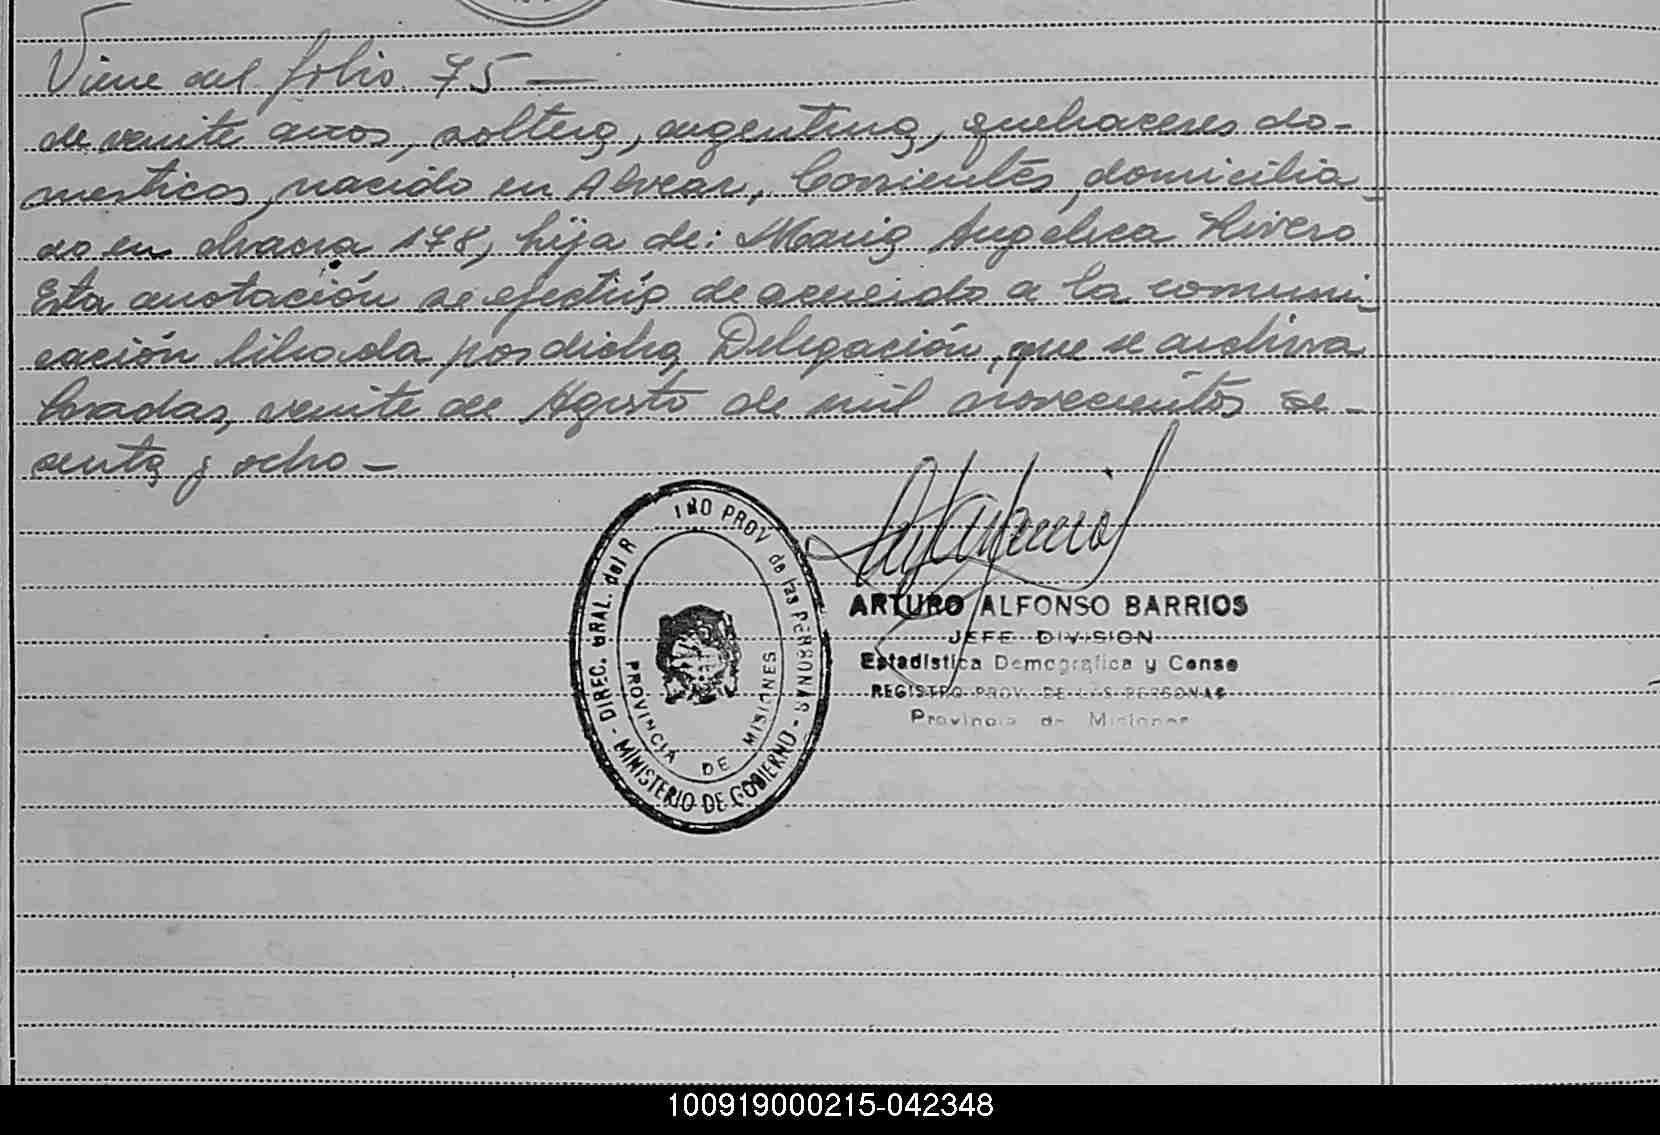 Viene del folio 75 —
de veinte años, soltera, argentina, quehaceres do-
mesticos, nacido en Alvear, Corrientes, domicilia-
do en chacra 178, hija de: Maria Angelica Rivero
Esta anotación se efectúa de acuerdo a la comuni-
cación librada por dicha Delegación, que se archiva
Posadas, veinte de Agosto de mil novecientos se-
senta y ocho —
DIREC. GRAL. del R INO PROV de las PERSONAS - MINISTERIO DE GOBIERNO -
PROVINCIA DE MISIONES
ARTURO ALFONSO BARRIOS
JEFE DIVISION
Estadística Demografica y Censo
REGISTRO PROV. DE LAS PERSONAS
Provincia de Misiones
100919000215-042348